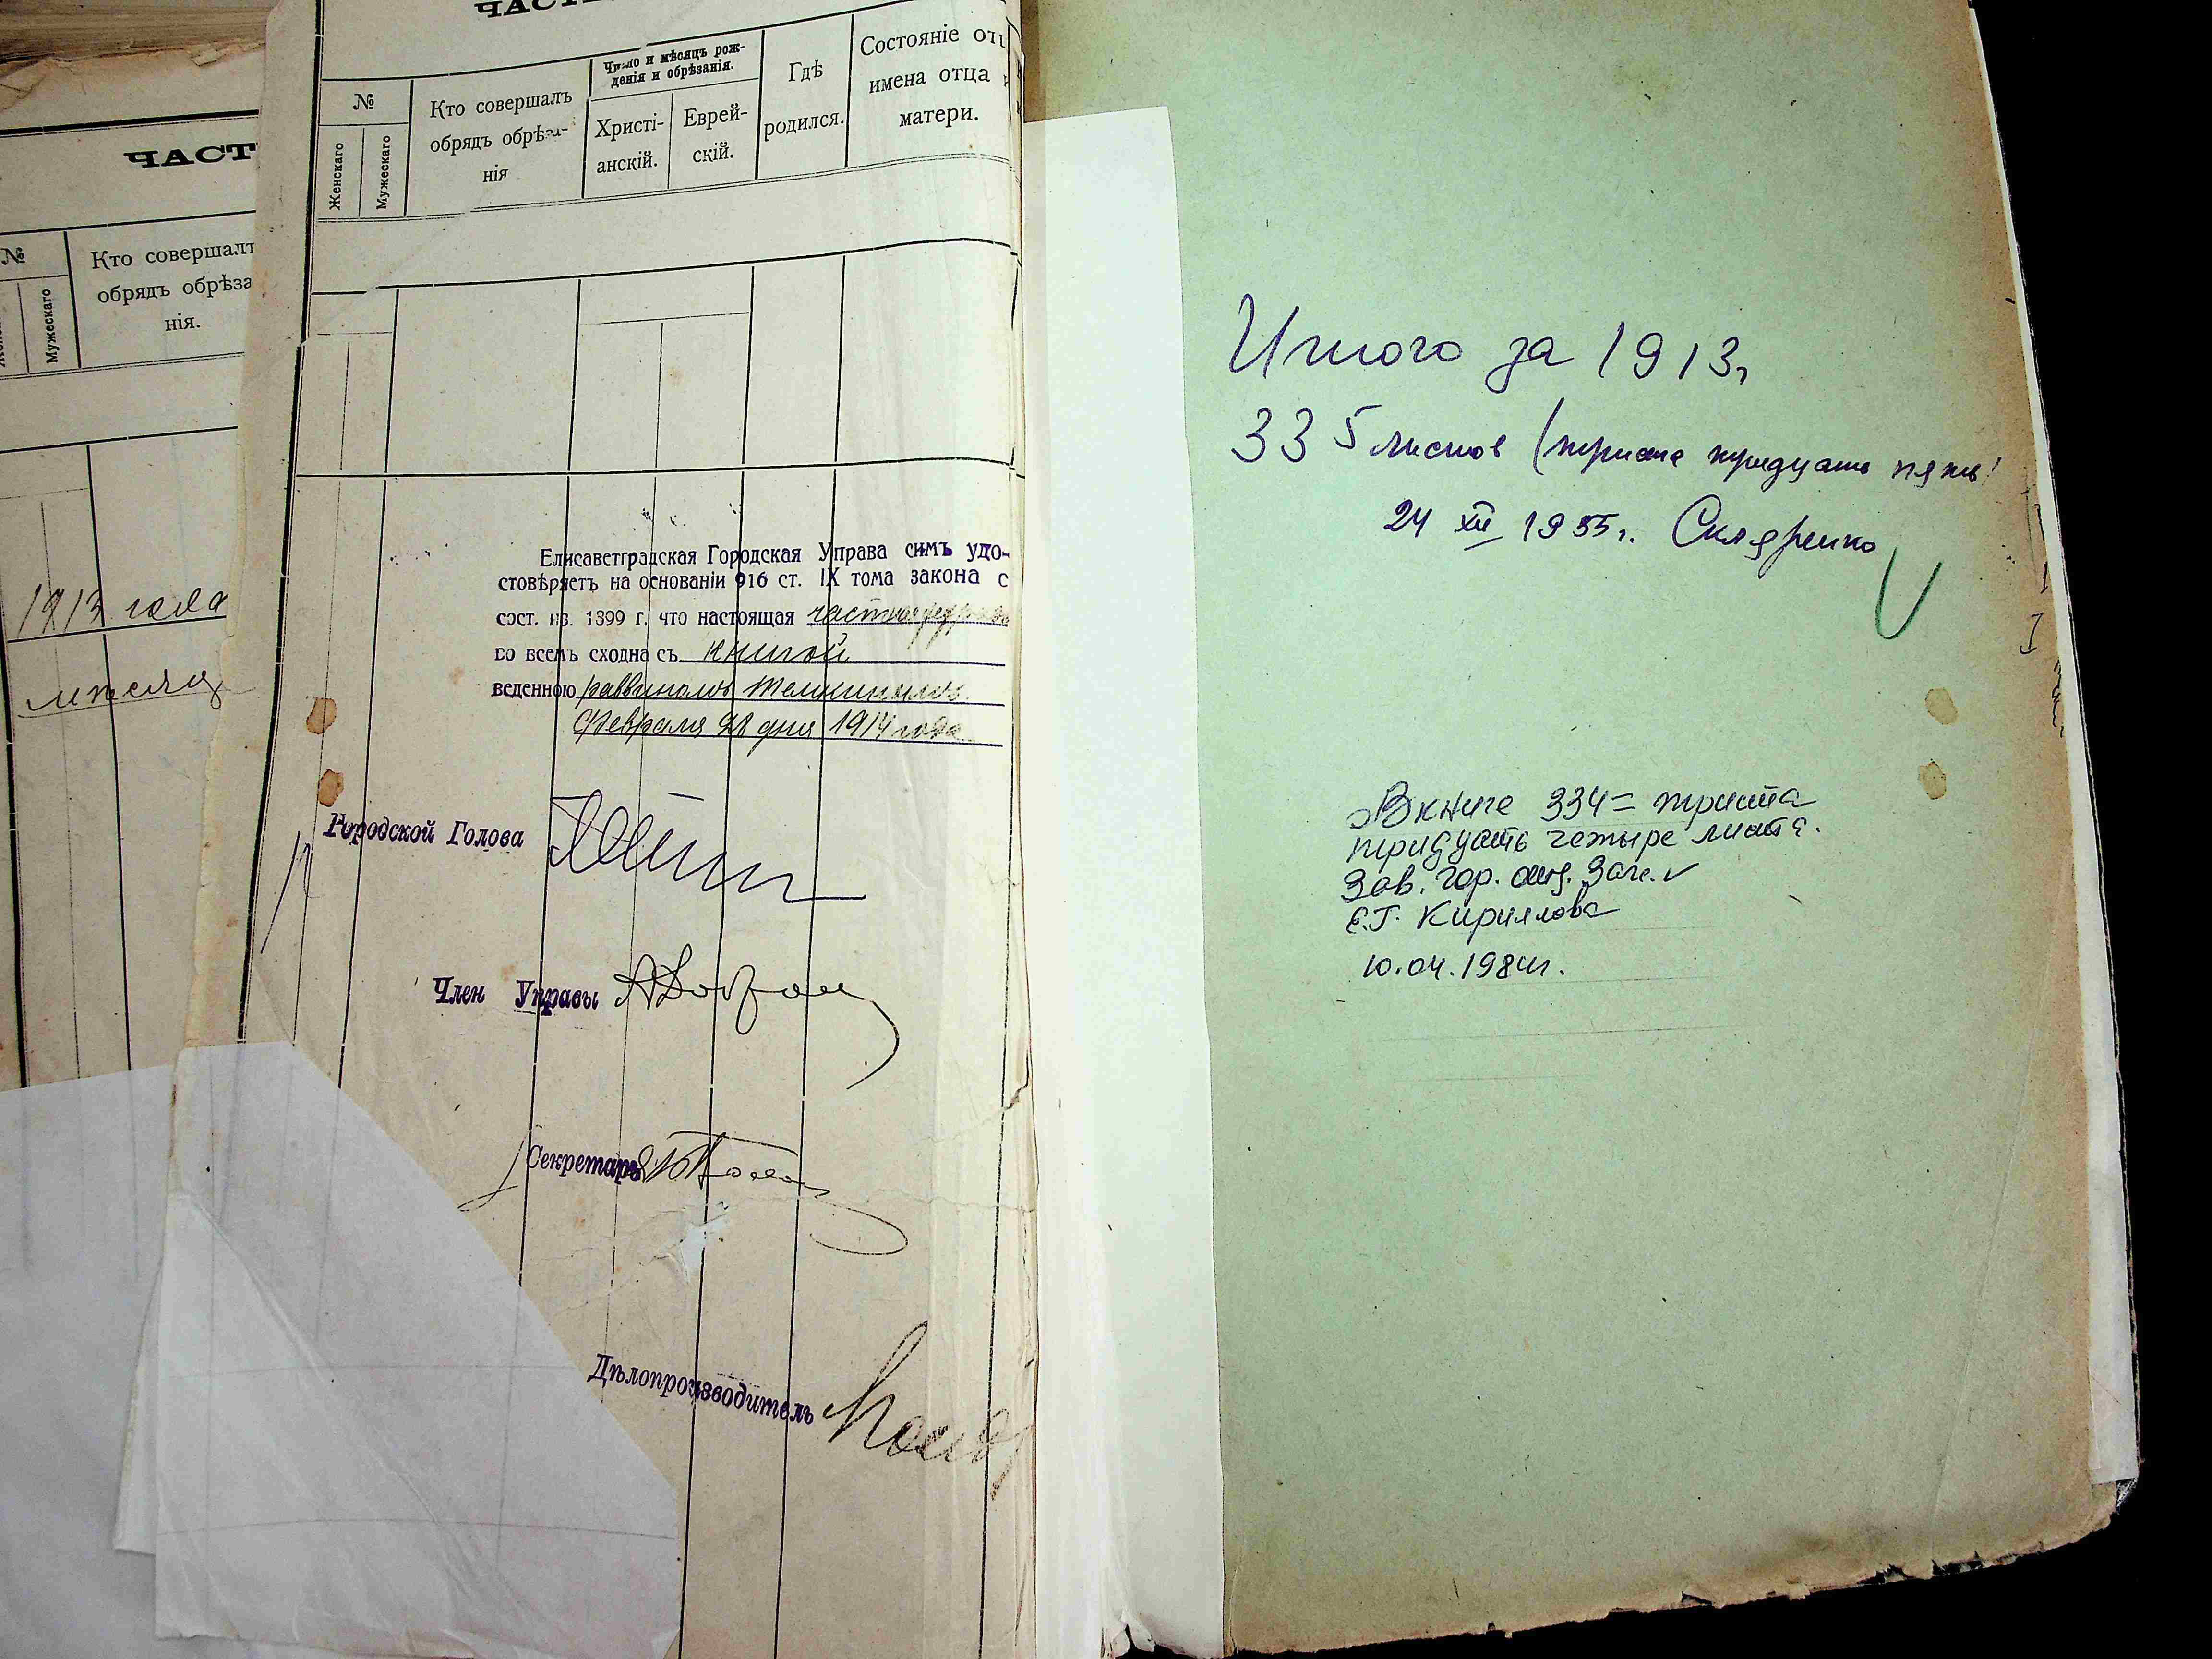 ЧАСТ
№
Женскаго
Мужескаго
Кто совершалъ
обрядъ обрѣза
нія.
1913 года
месяц
ЧАСТ
№
Женскаго
Мужескаго
Кто совершалъ
обрядъ обрѣза-
нія
Число и мѣсяцъ рож-
денія и обрѣзанія.
Христі-
анскій.
Еврей-
скій.
Гдѣ
родился.
Состояніе отц
имена отца
матери.
Елисаветградская Городская Управа симъ удо-
стовѣряетъ на основаніи 916 ст. IX тома закона с
сост. из. 1899 г. что настоящая
во всемъ сходна съ книгой
веденною раввиномъ
Февраля 28 дня 1914 года
Городской Голова
Член Управы
Секретарь
Дѣлопроизводитель
Итого за 1913г
335 листов (триста тридцать пять)
24 XII 1955г. Скляренко
В книге 334 = триста
тридцать четыре листа.
Зав. гор. отд. Загс.
Е.Г. Кириллова
10.04.1984г.